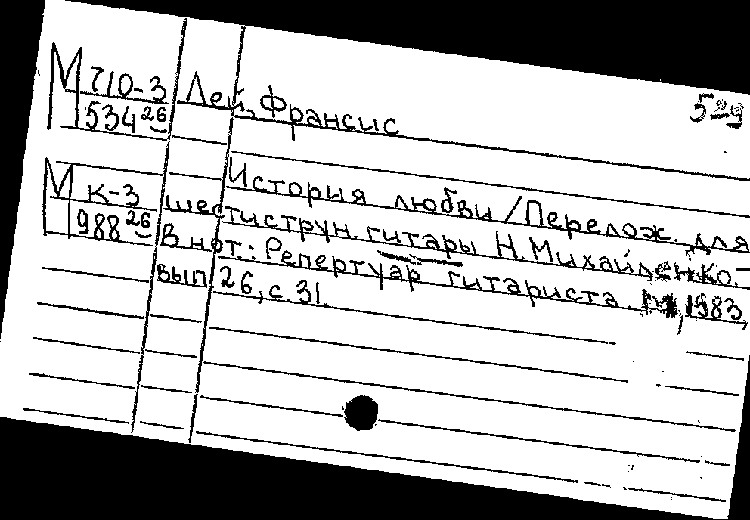 М 710-3
534 26
Лей, Франсис
529
М К-3
988 26
История любви / Перелож. для
шестиструн. гитары Н. Михайленко. –
В нот.: Репертуар гитариста. М., 1983,
вып. 26, с. 31.